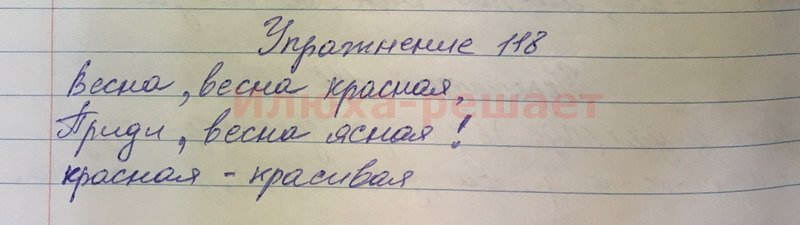 Упражнение 118
Весна, весна красная,
Илюха-решает
Приди, весна ясная!
красная - красивая